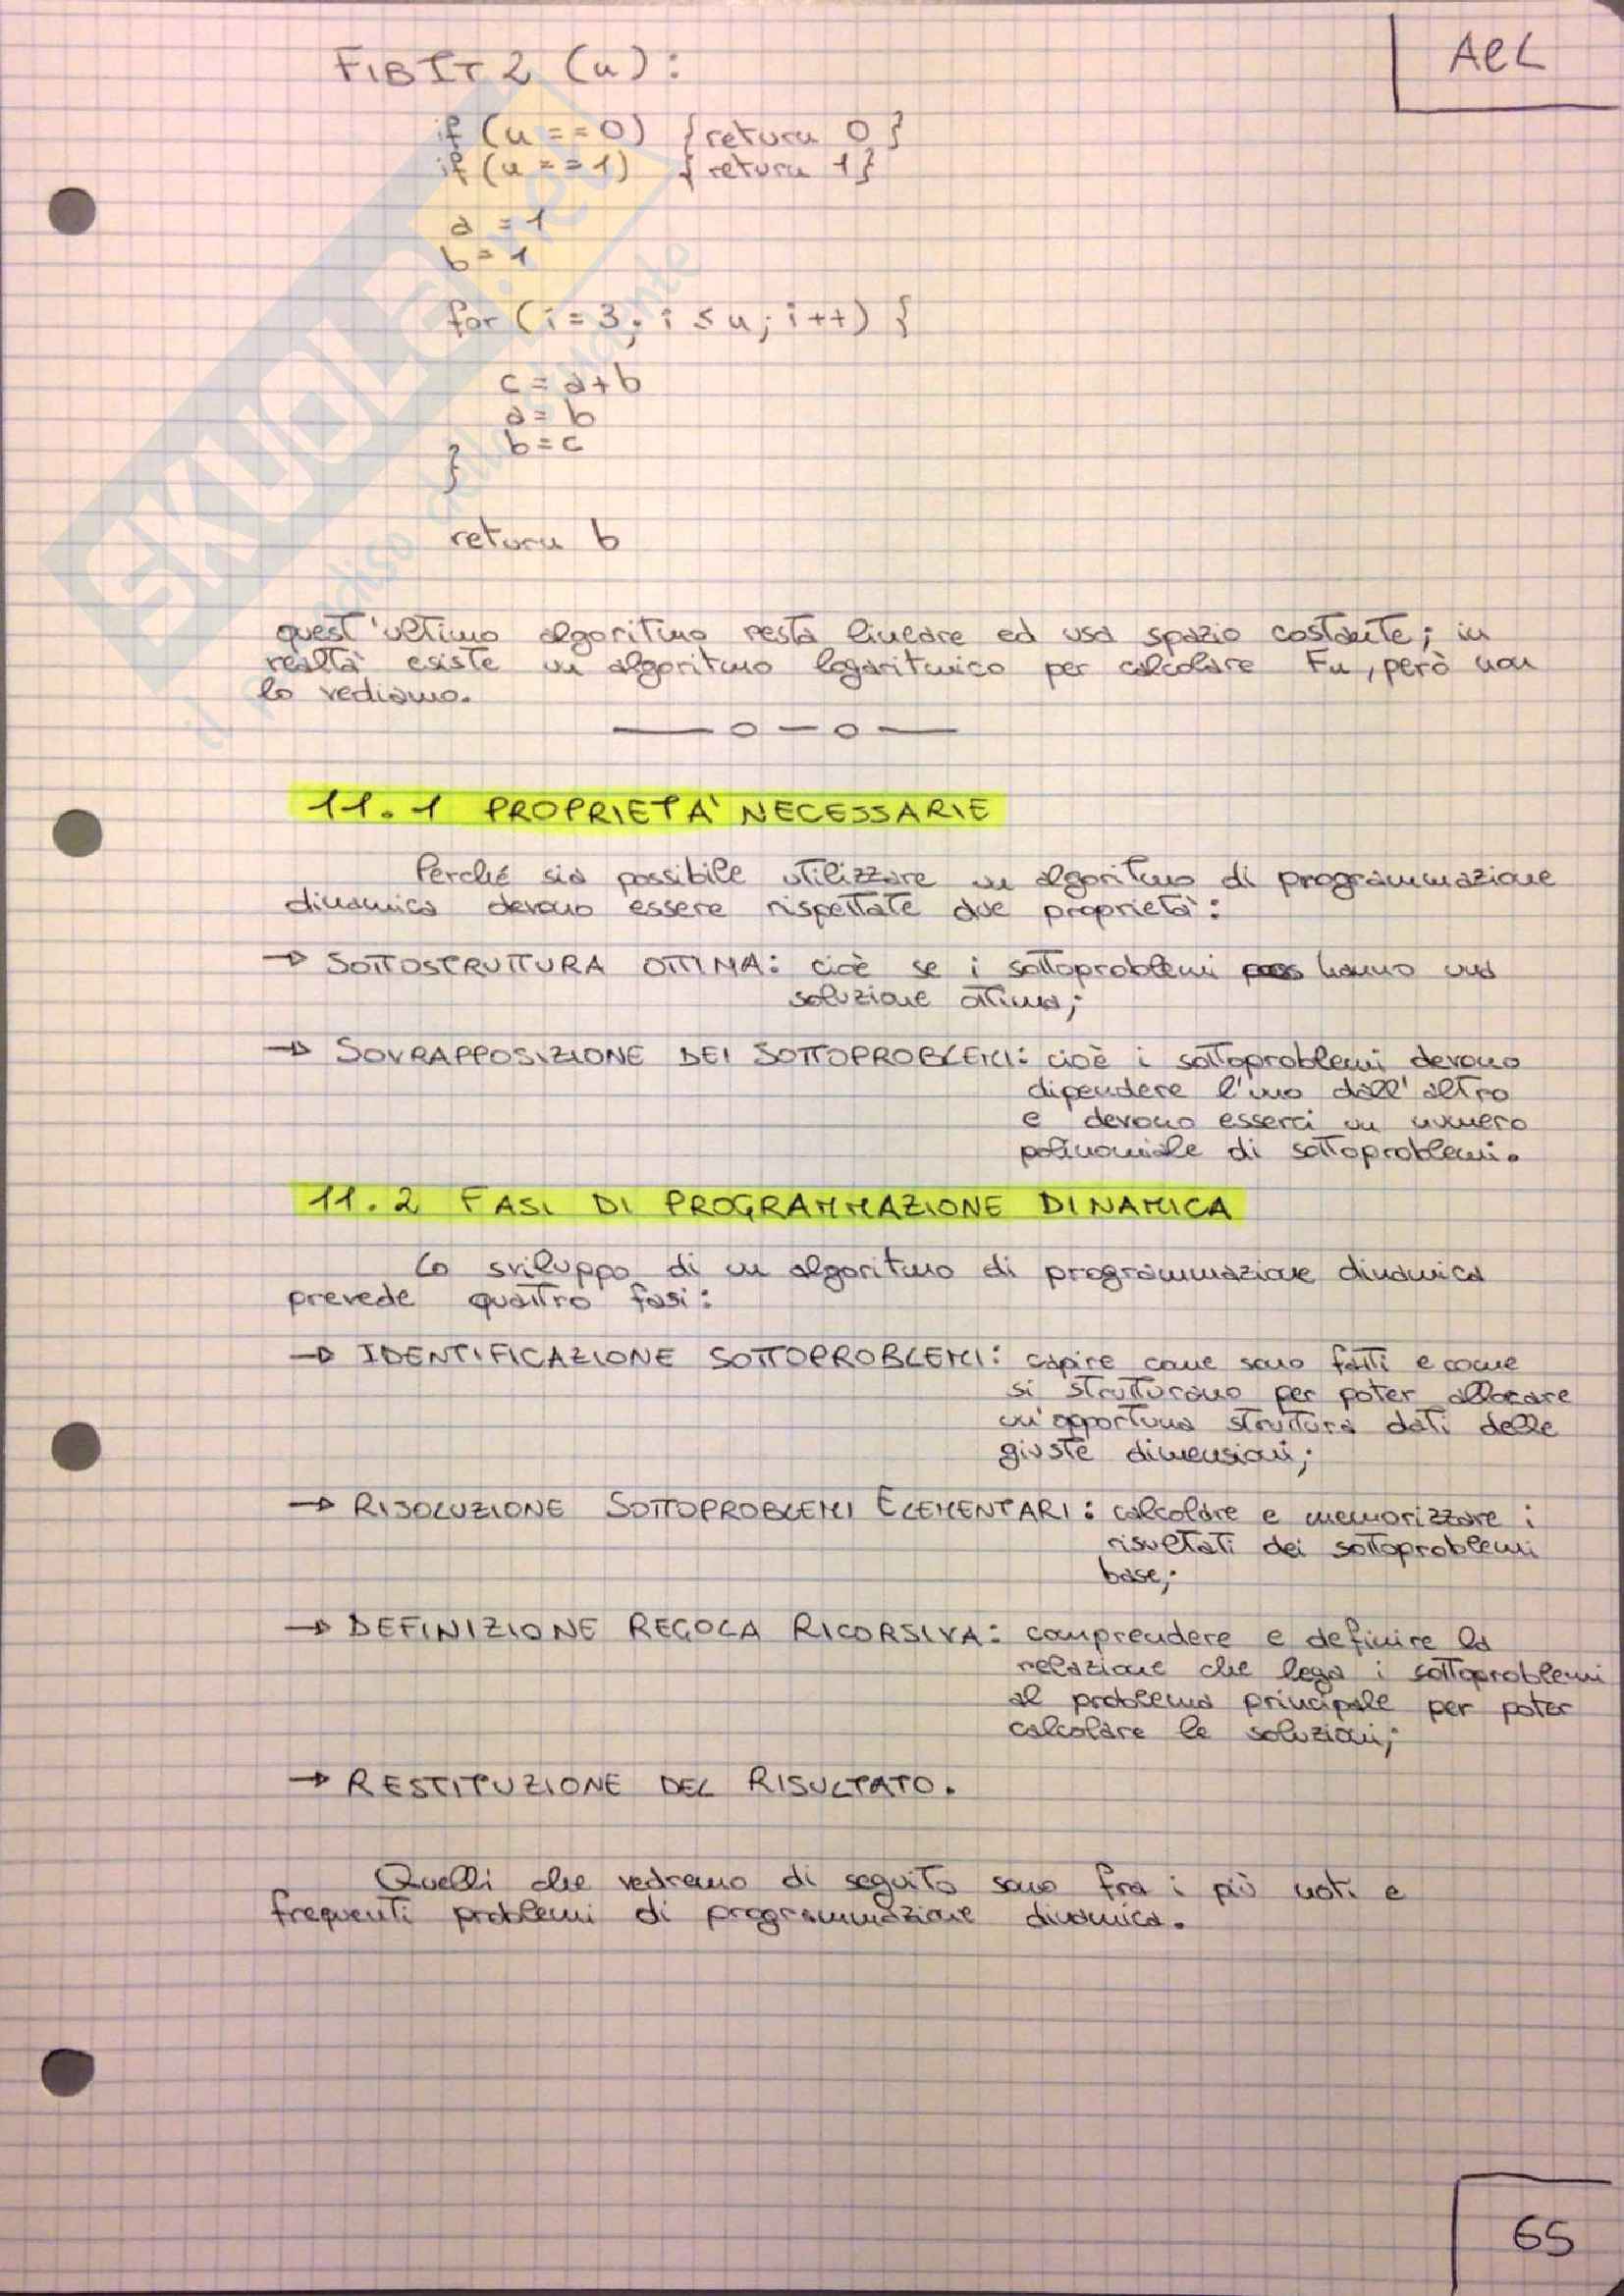 AeL
FIBIT2 (n):
if (n == 0) {return 0}
if (n == 1) {return 1}
a = 1
b = 1
for (i = 3; i ≤ n; i++) {
c = a+b
a = b
b = c
}
return b
quest'ultimo algoritmo resta lineare ed usa spazio costante; in
realtà esiste un algoritmo logaritmico per calcolare Fn, però non
lo vediamo.
11.1 PROPRIETA' NECESSARIE
Perché sia possibile utilizzare un algoritmo di programmazione
dinamica devono essere rispettate due proprietà:
→ SOTTOSTRUTTURA OTTIMA: cioè se i sottoproblemi hanno una
soluzione ottima;
→ SOVRAPPOSIZIONE DEI SOTTOPROBLEMI: cioè i sottoproblemi devono
dipendere l'uno dall'altro
e devono esserci un numero
polinomiale di sottoproblemi.
11.2 FASI DI PROGRAMMAZIONE DINAMICA
Lo sviluppo di un algoritmo di programmazione dinamica
prevede quattro fasi:
→ IDENTIFICAZIONE SOTTOPROBLEMI: capire come sono fatti e come
si strutturano per poter allocare
un'opportuna struttura dati delle
giuste dimensioni;
→ RISOLUZIONE SOTTOPROBLEMI ELEMENTARI: calcolare e memorizzare i
risultati dei sottoproblemi
base;
→ DEFINIZIONE REGOLA RICORSIVA: comprendere e definire la
relazione che lega i sottoproblemi
al problema principale per poter
calcolare le soluzioni;
→ RESTITUZIONE DEL RISULTATO.
Quelli che vedremo di seguito sono fra i più noti e
frequenti problemi di programmazione dinamica.
65
SKUOLA.net
il paradiso dello studente